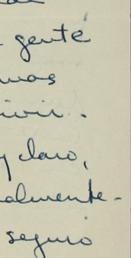 gente
mas
ivir.
y claro,
almente.
seguro